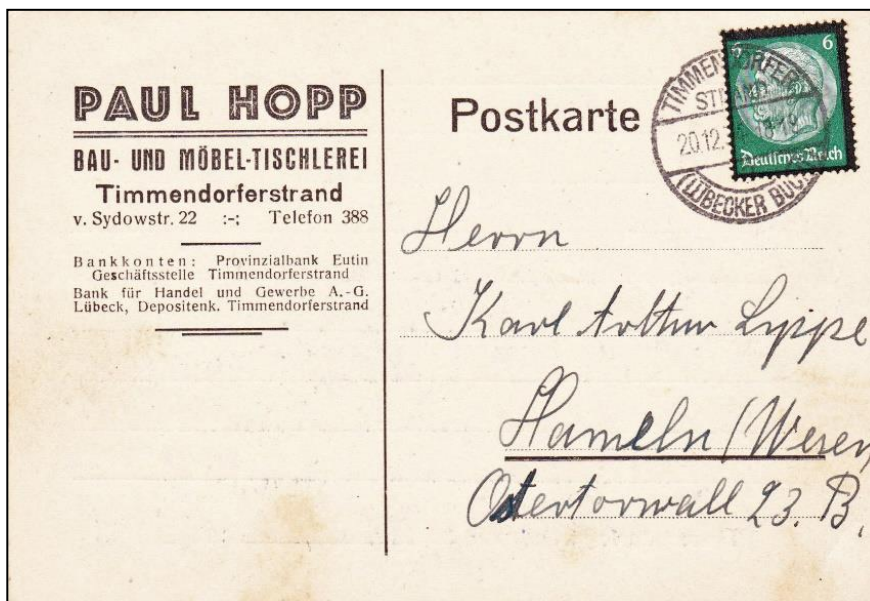 PAUL HOPP
BAU- UND MÖBEL-TISCHLEREI
Timmendorferstrand
v. Sydowstr. 22 :-; Telefon 388
Bankkonten: Provinzialbank Eutin
Geschäftsstelle Timmendorferstrand
Bank für Handel und Gewerbe A.-G.
Lübeck, Depositenk. Timmendorferstrand
Postkarte
6
Deutsches Reich
TIMMENDORFER
20.12.
18-19
(LÜBECKER BUCHT)
Herrn
Karl Arthur Lyppe
Hameln/Weser
Ostertorwall 23. B.